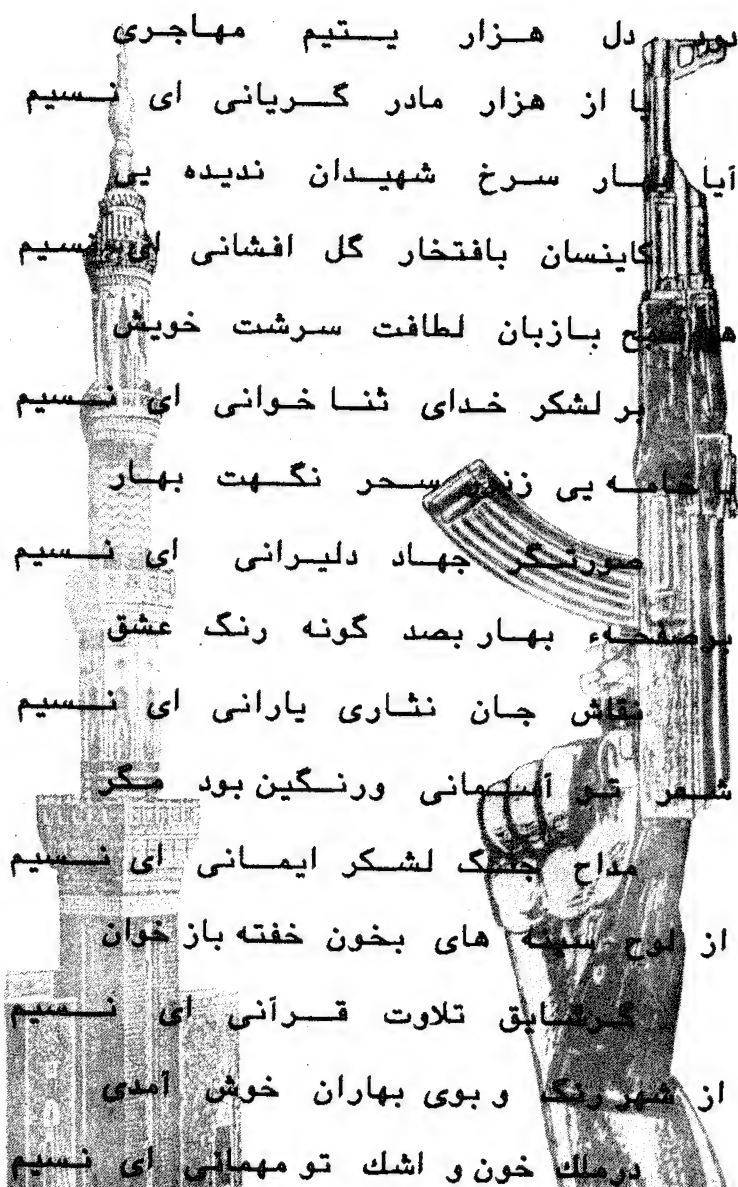 دود دل هزار یتیم مهاجری
یا از هزار مادر گریانی ای نسیم
آیا بهار سرخ شهیدان ندیده یی
کاینسان بافتخار گل افشانی ای نسیم
هر صبح بازبان لطافت سرشت خویش
بر لشکر خدای ثنا خوانی ای نسیم
با خامه یی سحر نگهت بهار
صورتگر جهاد دلیرانی ای نسیم
برصفحهء بهار بصد گونه رنگ عشق
نقاش جان نثاری یارانی ای نسیم
شعر تو آسمانی ورنگین بود مگر
مداح جنگ لشکر ایمانی ای نسیم
از لوح سینه های بخون خفته باز خوان
گرشایق تلاوت قرآنی ای نسیم
از شهر رنگ و بوی بهاران خوش آمدی
درملك خون و اشك تو مهمانی ای نسیم